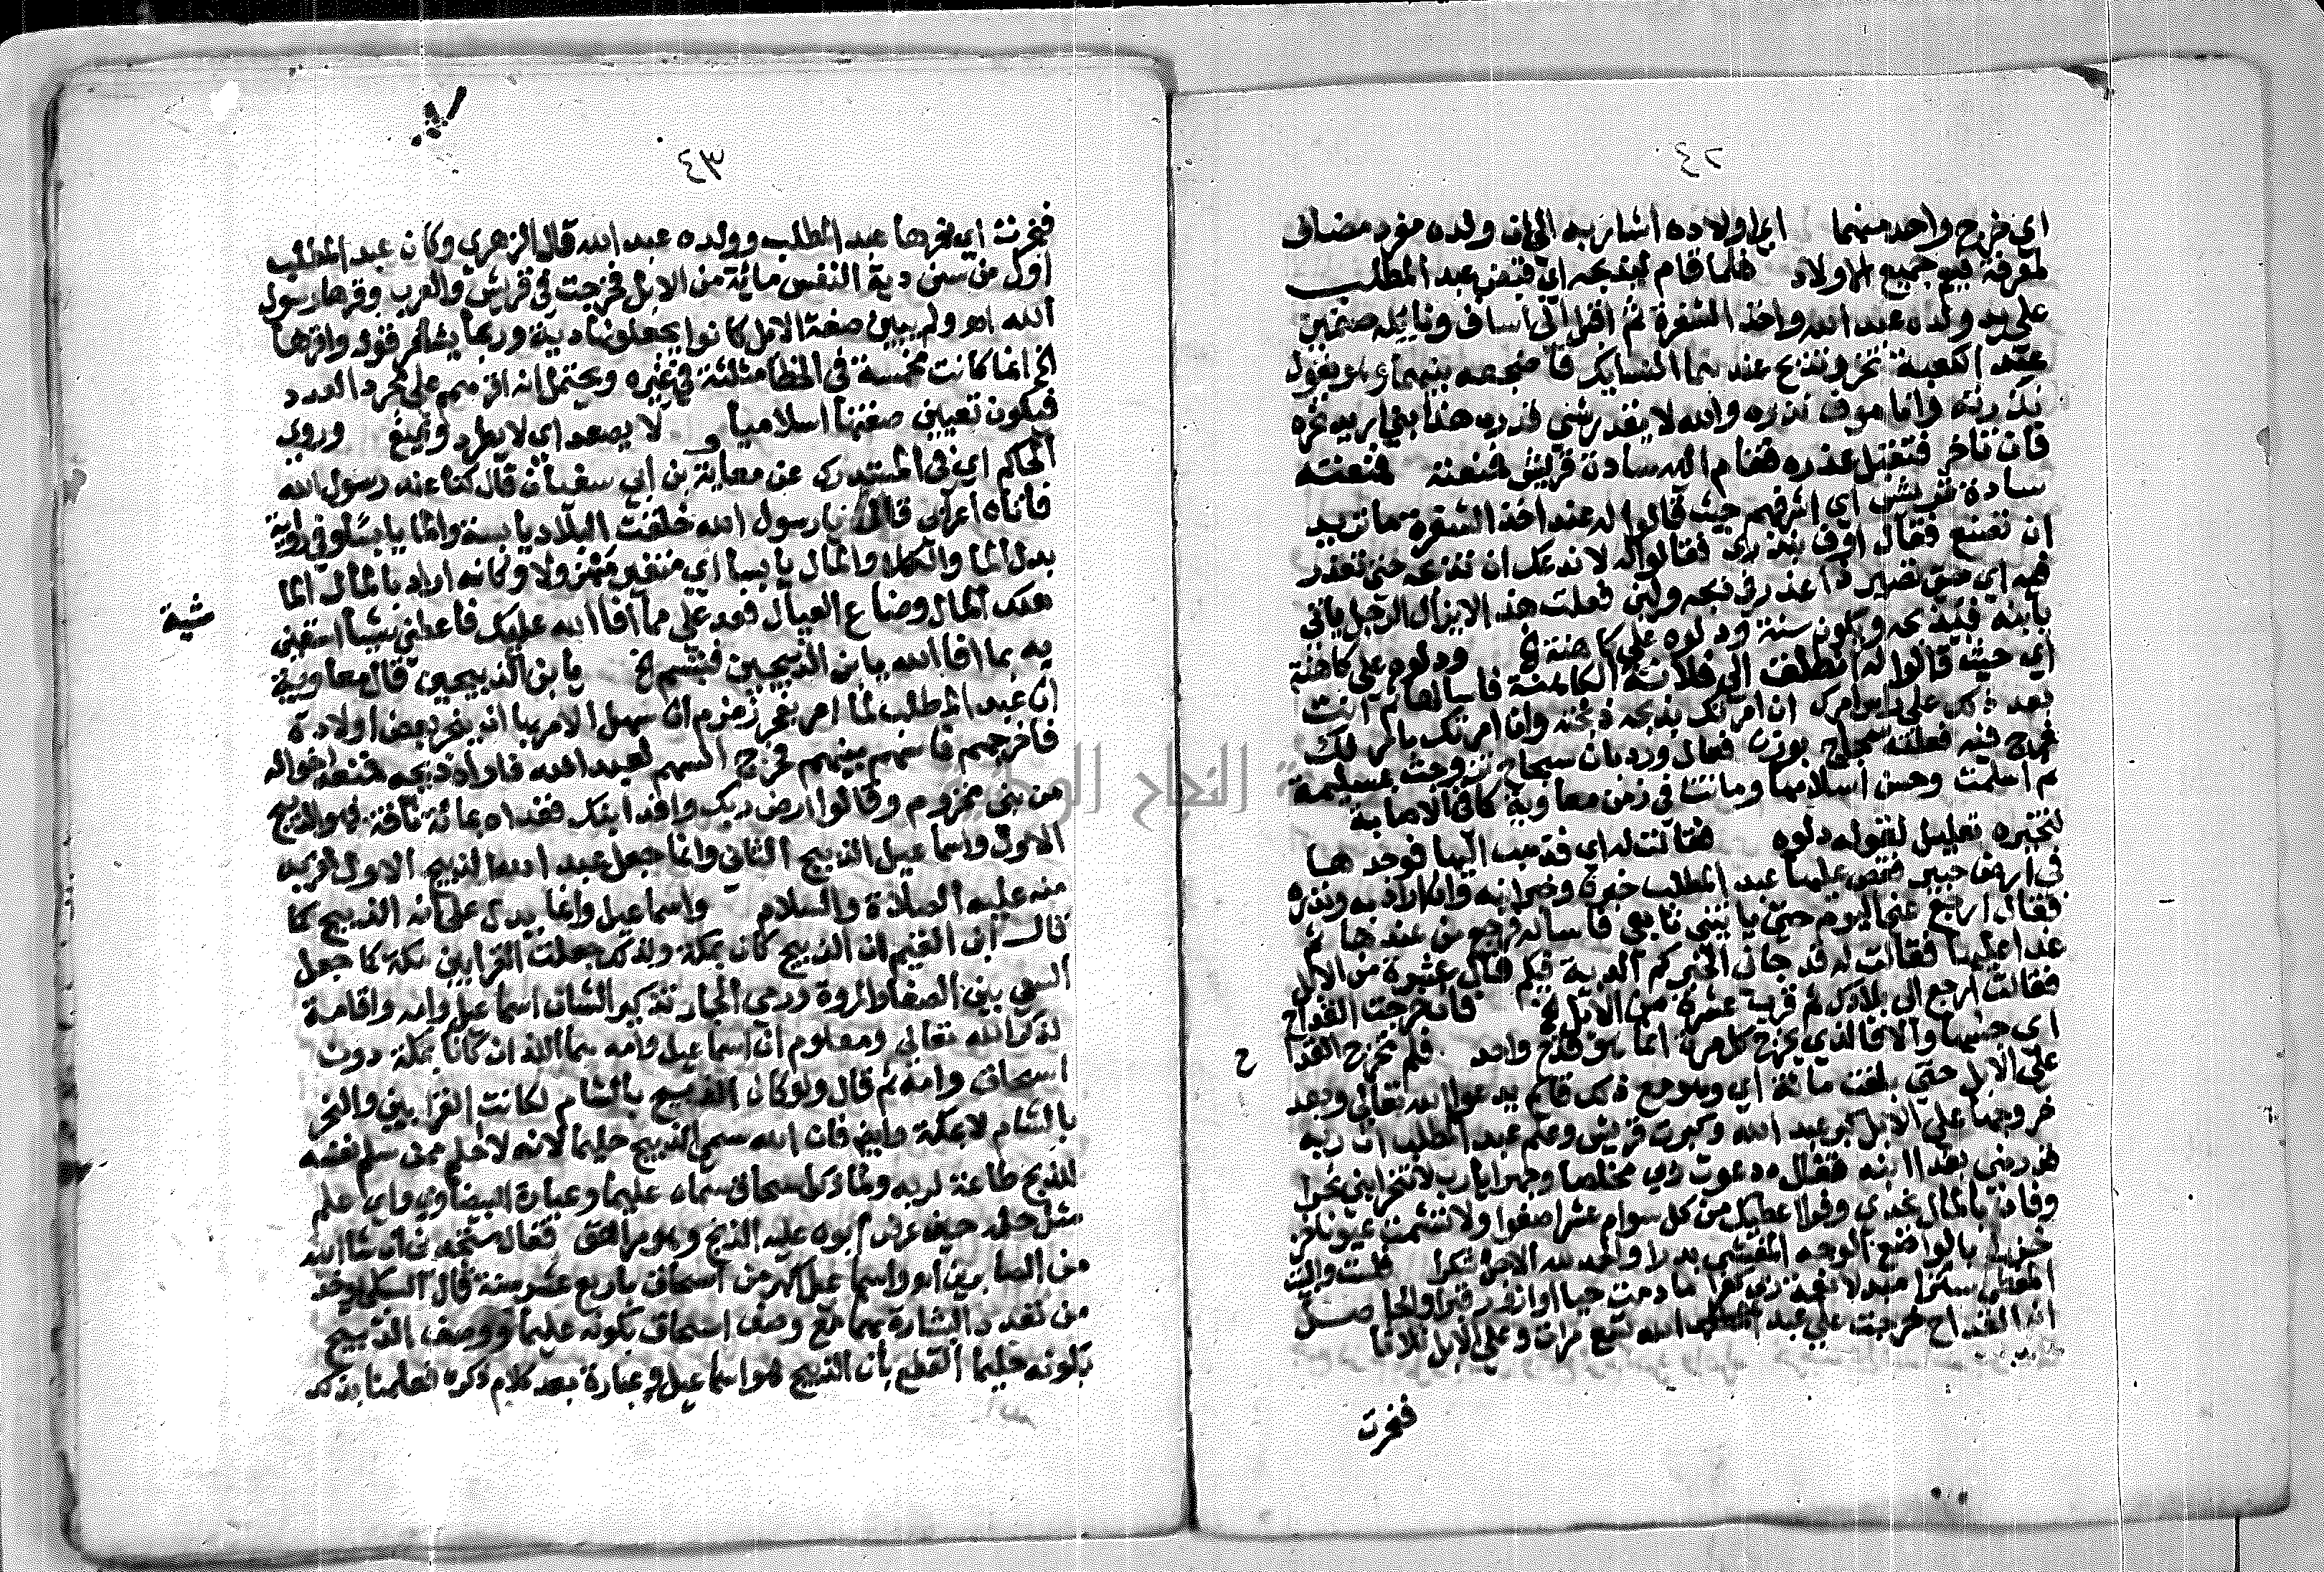 ٤٢
اي خرج واحد منهما ايا اولاده اشار به الى ان ولده مفرد مضاف
لمعرفة فيع جميع الاولاد فلما قام ليذبحه اي قبض عبد المطلب
على يد ولده عبد الله واخذ الشفرة ثم اقبل الى اساف ونايله صنمين
عند الكعبة تنحر وتذبح عندهما النسايك فاضجعه بينهما وهو يقول
نذرته وانا موف نذره والله لا يقدر شي قدره هذا بني اريد نحره
فان تاخر فتقبل عذره فقام اليه سادة قريش فمنعته فمنعته
سادة قريش اي اشرفهم حيث قالوا له عند اخذ الشفرة ما تريد
ان تصنع فقال اوف بنذري فقالوا له لا ندعك ان تذبحه حتى تعذر
فيه اي حتى تصير ذا عذر في ذبحه ولين فعلت هذا لا يزال الرجل ياتي
بابنه فيذبحه ويكون سنة ودلوه على كاهنة الخ ودلوه على كاهنة
اي حيث قالوا له انطلق الى فلانة الكاهنة فاسالها ثم انت
بعد ذلك على راس امرك ان امرتك بذبحه ذبحته وان امرتك بامر لك
فرج فيه فعلته سجاح بوزن فعال ورد بان سجاح تزوجت بمسيلمة
ثم اسلمت وحسن اسلامها وماتت في زمن معاوية كما في الاصابة
لتخبره تعليل لقوله دلوه فقالت له اي فذهب اليها فوجدها
في ارض خيبر فقص عليها عبد المطلب خبره وخبر ابنه وما كان اراد به ونذره
فقال ارجع عني اليوم حتى ياتيني تابعي فاساله فرجع من عندها ثم
غدا عليها فقالت له قد جاني الخبر كم الدية فيكم قال عشرة من الابل
فقالت ارجع الى بلادك ثم قرب عشرة من الابل الخ فان خرجت القداح
اي جنسها والا فالذي يخرج كل مرة انما هو قدح واحد فلم تخرج القدا ح
على الابل حتى بلغت مائة اي وهو مع ذلك قائم يدعو الله تعالى وبعد
خروجها على الابل كبر عبد الله وكبرت قريش وعلم عبد المطلب ان ربه
قد رضي بفدا ابنه فقال دعوت ربي مخلصا وجهرا يارب لا تنحر ابني نحرا
وفاد بالمال تجدي وفرا اعطيك من كل سوام عشرا صفوا ولا تشمت عيونا
بالواضح الوجه المغشي بدرا والحمد لله الاجل شكرا فلست والبيت
المغطى سترا مبدلا نعمة ربي كفرا ما دمت حيا او ازور قبرا والحاصل
ان القداح خرجت على عبد الله تسع مرات وعلى الابل ثلاثا
فنحرت
٤٣
فنحرت اي نحرها عبد المطلب وولده عبد الله قال الزهري وكان عبد المطلب
اول من سن دية النفس مائة من الابل فجرت في قريش والعرب وقرها رسول
الله اهـ ولم يبين صفة الابل كانوا يجعلونها دية وربما يشعر قوله واقرها
الخ انها كانت مخمسة في الخطا مثلثة في غيره ويحتمل انه اقرهم على مجرد العدد
فيكون تعيين صفتها اسلاميا لا يصعد اي لا يطرد ويمنع وروى
الحاكم اي في المستدرك عن معاية بن ابي سفيان قال كنا عند رسول الله
فاتاه اعرابي قال يا رسول الله خلفت البلاد يابسة والما يابسا وفي رواية
بدل الما والكلا والمال يابسا اي متغير مهزولا وكانه اراد بالمال الما
شية
هلك المال وضاع العيال فعد علي مما افا الله عليك فاعطني شيا استعن
به بما افا الله يا بن الذبيحين فتبسم الخ يا بن الذبيحين قال معاوية
ان عبد المطلب لما امر بحفر زمزم ان سهل الامر بها ان ينحر بعض اولاده
فاخرجهم فاسهم بينهم فخرج السهم لعبد الله فاراد ذبحه فمنعه اخواله
من بني مخزوم وقالوا ارض ربك وافد ابنك ففداه بمائة ناقة فهو الذبيح
الاول واسماعيل الذبيح الثاني وانما جعل عبد الله الذبيح الاول لقربه
منه عليه الصلاة والسلام واسماعيل وانما يدل على انه الذبيح كما
قال ابن القيم ان الذبيح كان بمكة ولذلك جعلت القرابين بمكة كما جعل
السعي بين الصفا والمروة ورمي الجمار تذكيرا لشان اسماعيل وامه واقامة
لذكر الله تعالى ومعلوم ان اسماعيل وامه هما اللذان كانا بمكة دون
اسحاق وامه ثم قال ولو كان الذبيح بالشام لكانت القرابين والنحر
بالشام لا بمكة وايضا فان الله سمى الذبيح حليما لانه لا احلم ممن سلم نفسه
للذبح طاعة لربه ولما ذكر اسحاق سماه عليما وعبارة البيضاوي واي حلم
مثل حلمه حين عرض ابوه عليه الذبح وهو مراهق فقال ستجدني ان شاء الله
من الصابرين اهـ واسماعيل اكبر من اسحاق باربع عشر سنة قال السبكي يوخذ
من تعدد البشارة بهما مع وصف اسحاق بكونه عليما ووصف الذبيح
بكونه حليما القطع بان الذبيح هو اسماعيل وعبارة بعد كلام ذكره فعلمنا بذلك